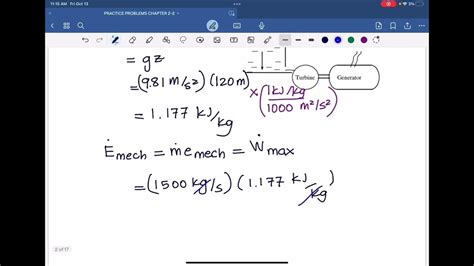 11:15 AM Fri Oct 13
PRACTICE PROBLEMS CHAPTER 2-2
= gz
= (9.81 m/s²) (120m) × (1 kJ/kg / 1000 m²/s²)
Turbine
Generator
= 1.177 kJ/kg
Ė mech = ṁe mech = Ẇ max
= (1500 kg/s) (1.177 kJ/kg)
2 of 17